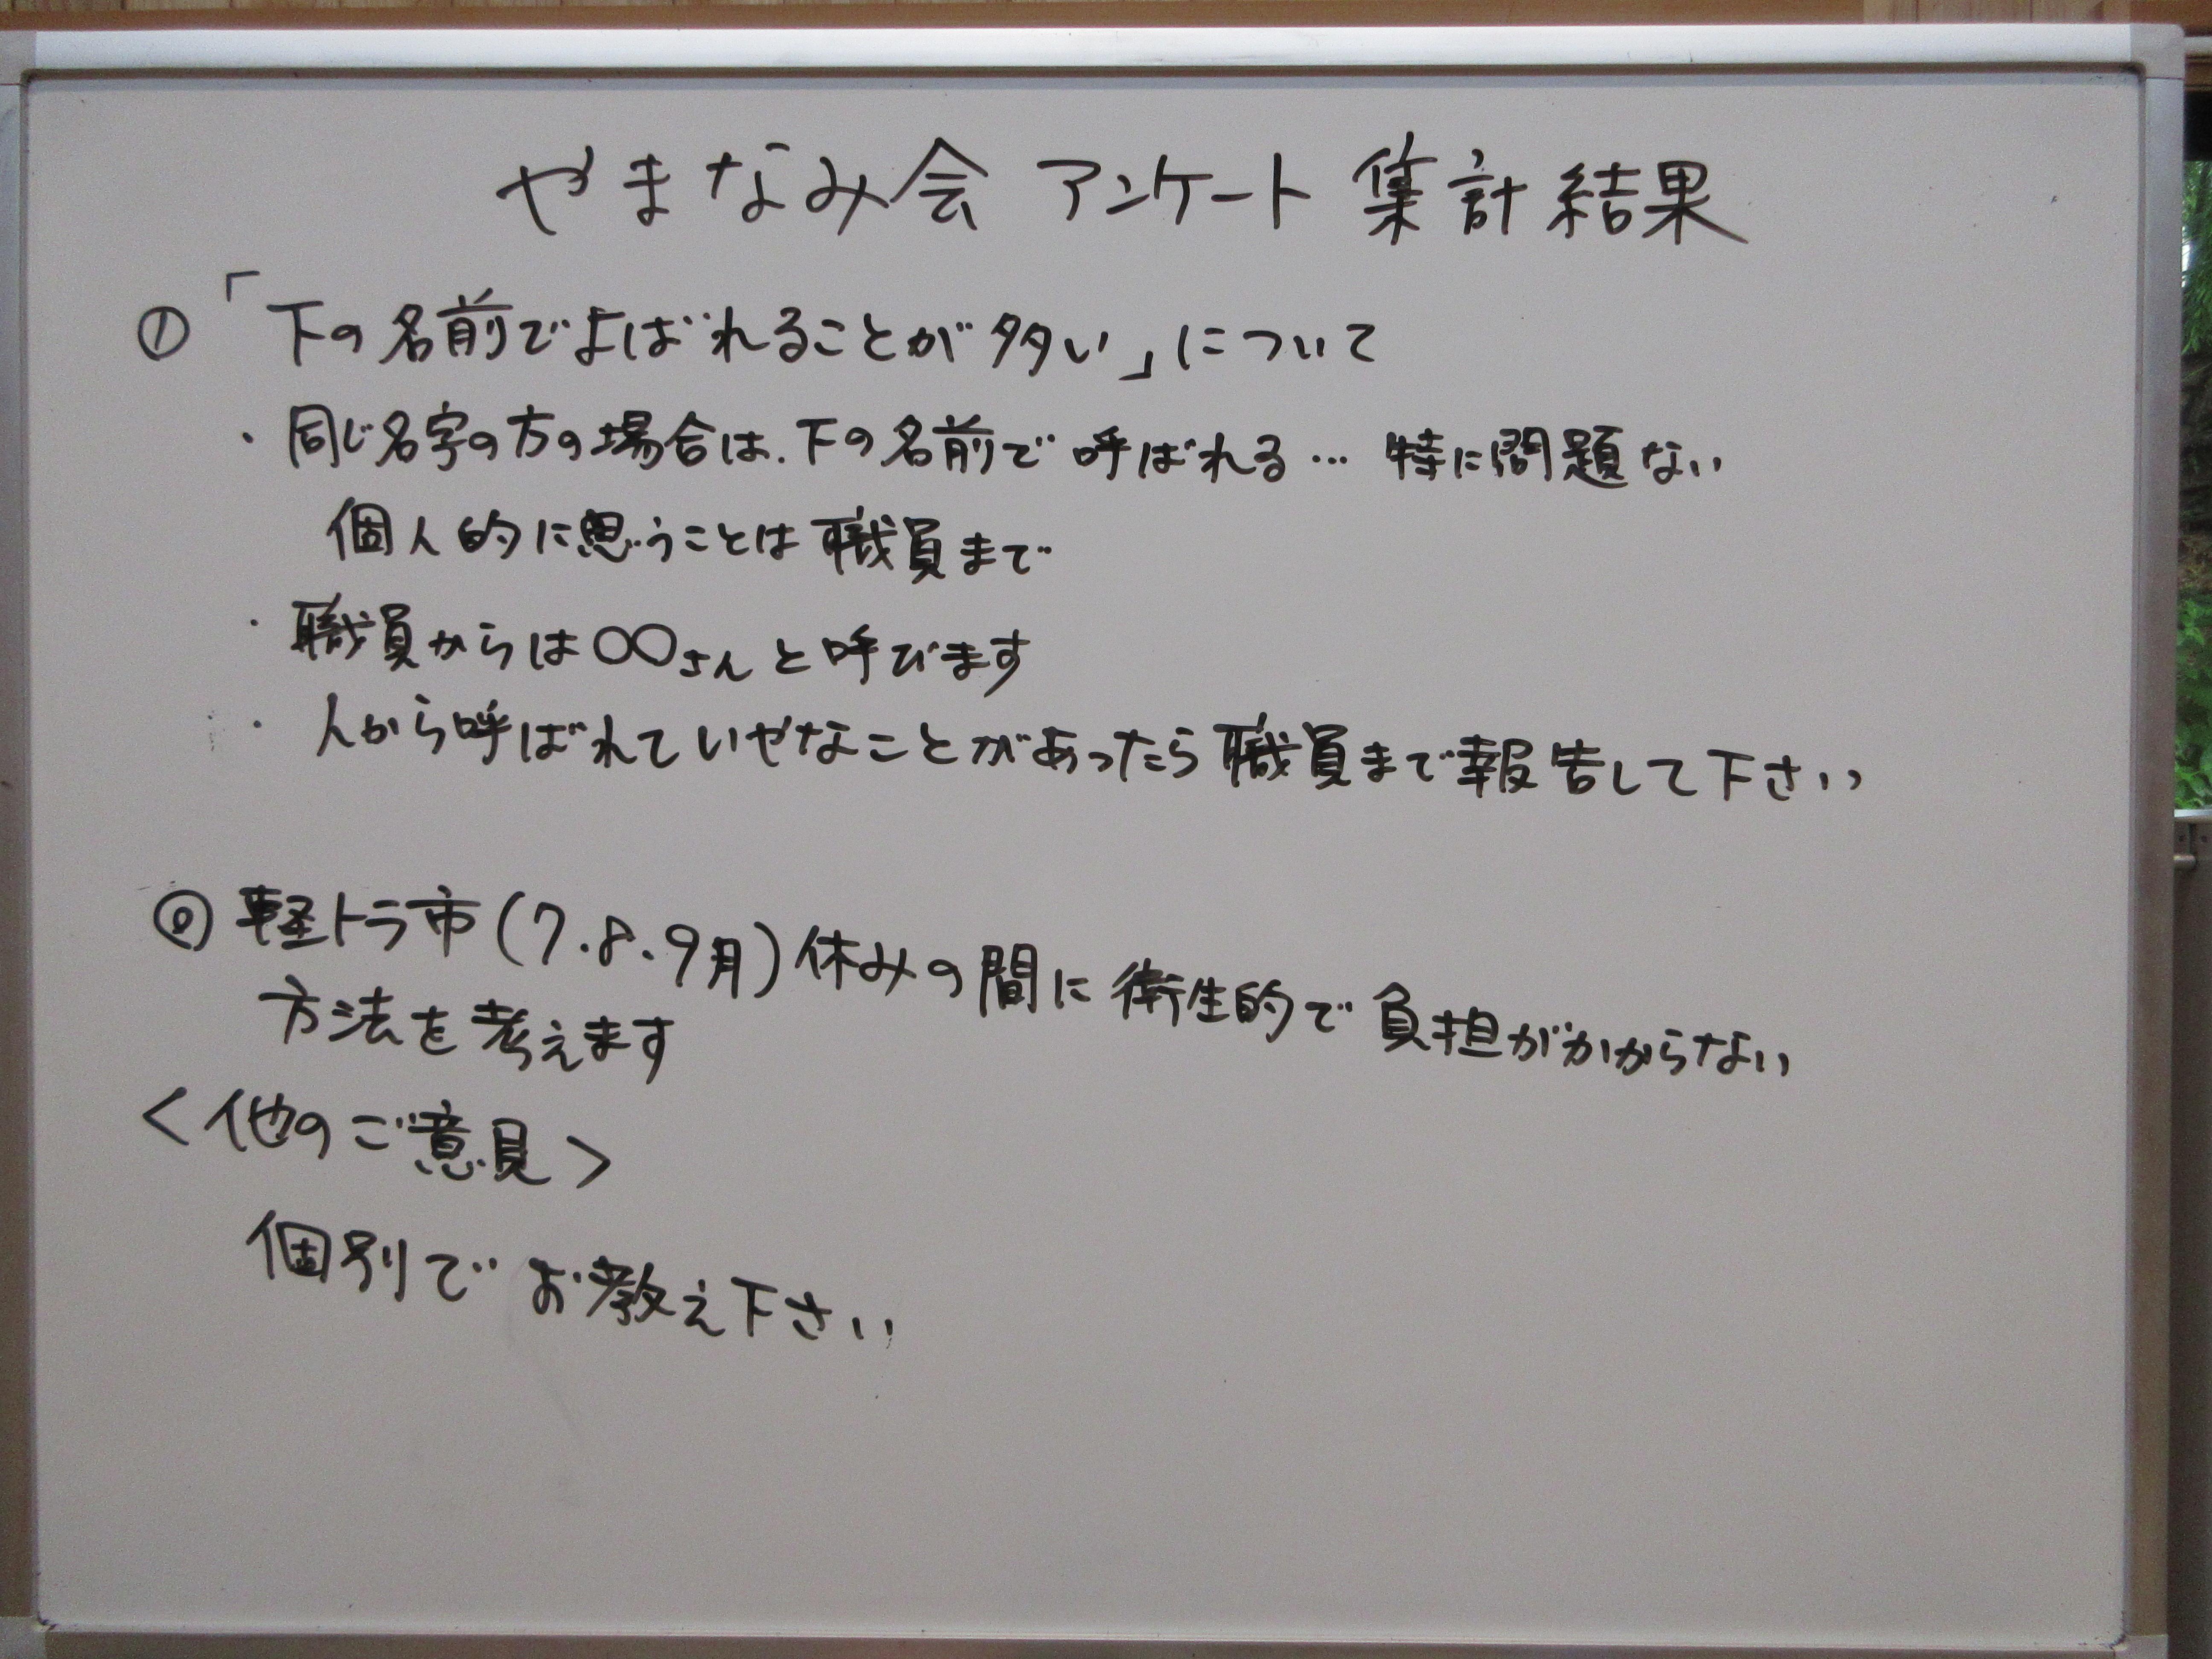 やまなみ会 アンケート 集計結果
① 「下の名前でよばれることが多い」について
・同じ名字の方の場合は、下の名前で呼ばれる… 特に問題ない
個人的に思うことは職員まで
・職員からは〇〇さんと呼びます
・人から呼ばれていやなことがあったら職員まで報告して下さい
② 軽トラ市(7.8.9月)休みの間に衛生的で負担がかからない
方法を考えます
<他のご意見>
個別でお教え下さい